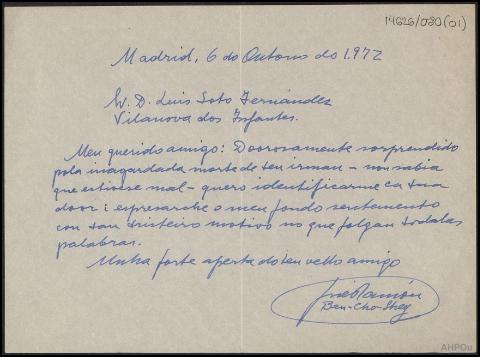 14626/030(01)
Madrid, 6 do Outono do 1.972
Sr. D. Luis Soto Fernández
Vilanova dos Infantes.
Meu querido amigo: Doorosamente sorprendido
pola inagardada morte do teu irman - non sabia
que estivese mal - quero identificarme ca tua
door i expresarche o meu fondo sentemento
con tan tristeiro motivo no que folgan todalas
palabras.
Unha forte aperta do teu vello amigo
José Ramón
Ben-Cho-Shey
AHPOu